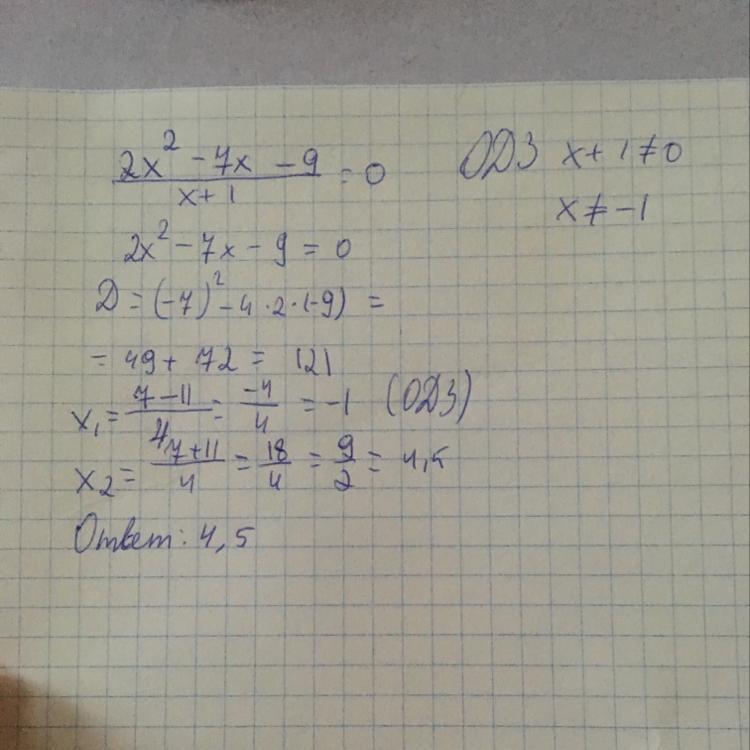 (2x² - 7x - 9)/(x+1) = 0
ОДЗ x + 1 ≠ 0
x ≠ -1
2x² - 7x - 9 = 0
D = (-7)² - 4 · 2 · (-9) =
= 49 + 72 = 121
x₁ = (7 - 11)/4 = -4/4 = -1 (ОДЗ)
x₂ = (7 + 11)/4 = 18/4 = 9/2 = 4,5
Ответ: 4,5